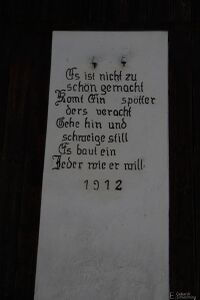 Es ist nicht zu
schön gemacht
Komt Ein spötter
ders veracht
Gehe hin und
schweige still
Es baut ein
Jeder wie er will
1912